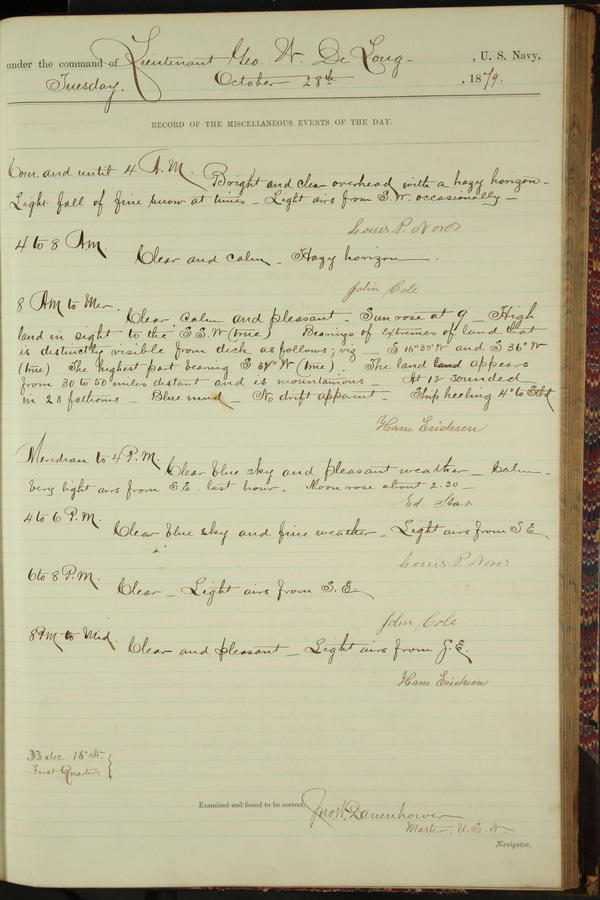 under the command of Lieutenant Geo. W. De Long , U. S. Navy,
Tuesday. October 28th , 1879.
RECORD OF THE MISCELLANEOUS EVENTS OF THE DAY.
Com. and until 4 A.M. Bright and clear overhead with a hazy horizon -
Light fall of fine snow at times - Light airs from S.W. occasionally -
Louis P. Noros
4 to 8 AM Clear and calm - Hazy horizon.
John Cole
8 AM to Mer. Clear calm and pleasant - Sun rose at 9 - High
land in sight to the S.S.W (true) Bearings of extremes of land that
is distinctly visible from deck as follows; viz - S 16°30' W and S 36° W
(true) The highest part bearing S 34° W (true). The land land appears
from 30 to 50 miles distant and is mountainous - At 12 sounded
in 28 fathoms - Blue mud - No drift apparent - Ship heeling 4° to Stbd
Hans Ericksen
Meridian to 4 P.M. Clear blue sky and pleasant weather - Calm -
Very light airs from S.E. last hour. Moon rose about 2.30 -
Ed. Star
4 to 6 P.M. Clear blue sky and fine weather - Light airs from S E
Louis P. Noros
6 to 8 P.M. Clear - Light airs from S. E.
John Cole
8 PM to Mid Clear and pleasant - Light airs from S.E.
Hans Ericksen
dec. 16° N.
First Quarter
Examined and found to be correct. Jno. W. Danenhower
Master. U. S. N.
Navigator.